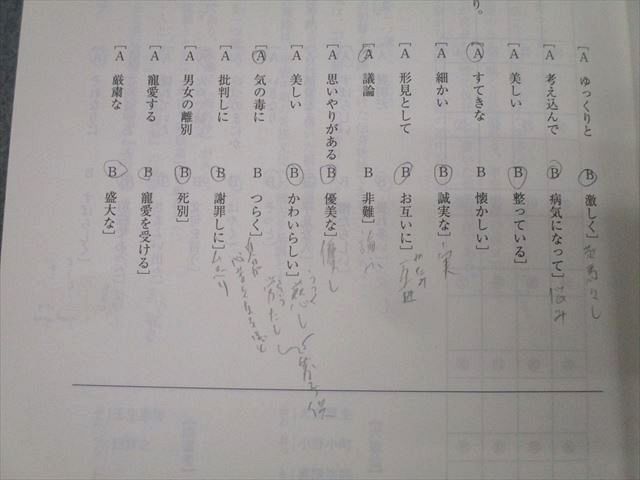 り。
[A ゆっくりと B 激しく]
[A 考え込んで B 病気になって] 悩み
[A 美しい B 整っている]
[A すてきな B 懐かしい]
[A 細かい B 誠実な] 実
[A 形見として B お互いに] かたみ
[A 議論 B 非難] 論
[A 思いやりがある B 優美な] 優し
[A 美しい B かわいらしい]
[A 気の毒に B つらく]
[A 批判しに B 謝罪しに]
[A 男女の離別 B 死別]
[A 寵愛する B 寵愛を受ける]
[A 厳粛な B 盛大な]